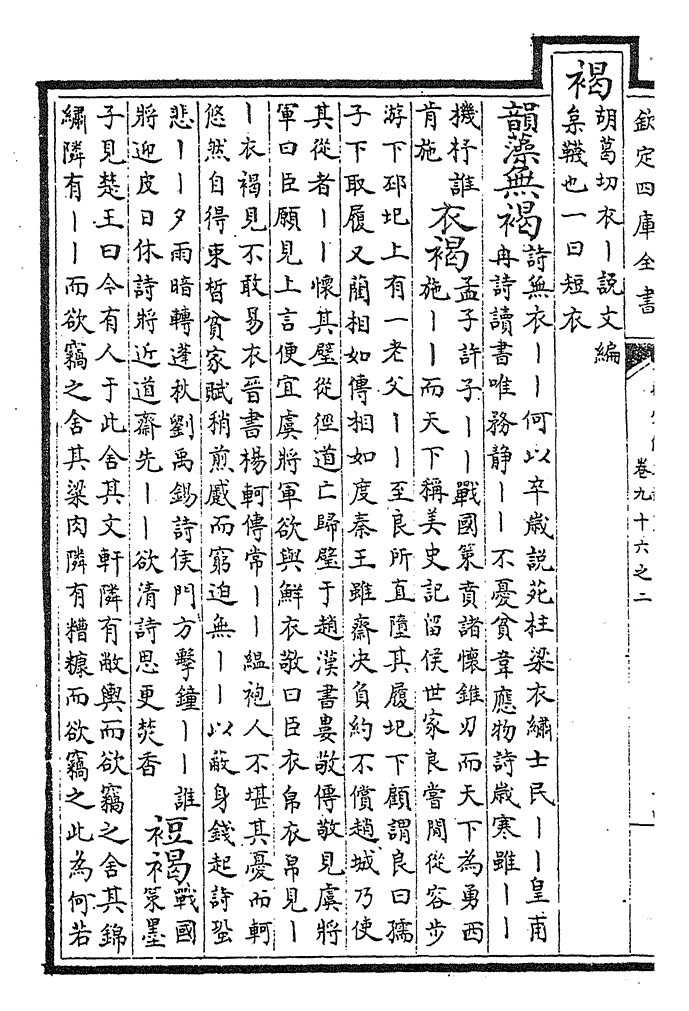 欽定四庫全書
卷九十六之二
褐胡葛切衣丨説文編
枲韈也一曰短衣
韻藻無褐詩無衣丨丨何以卒歲説苑柱梁衣繡士民丨丨皇甫
冉詩讀書唯務静丨丨不憂貧韋應物詩歳寒雖丨丨
機杼誰
肯施
衣褐孟子許子丨丨戰國策賁諸懷錐刃而天下為勇西
施丨丨而天下稱美史記留侯世家良嘗閒從容步
游下邳圯上有一老父丨丨至良所直墮其履圯下顧謂良曰孺
子下取履又藺相如傳相如度秦王雖齋决負約不償趙城乃使
其從者丨丨懷其璧從徑道亡歸璧于趙漢書婁敬傳敬見虞將
軍曰臣願見上言便宜虞將軍欲與鮮衣敬曰臣衣帛衣帛見丨
丨衣褐見不敢易衣晉書楊軻傳常丨丨緼袍人不堪其憂而軻
悠然自得束晳貧家賦稍煎蹙而窮迫無丨丨以蔽身錢起詩蛩
悲丨丨夕雨暗轉蓬秋劉禹錫詩侯門方擊鐘丨丨誰
將迎皮日休詩將近道齋先丨丨欲清詩思更焚香
裋褐戰國
策墨
子見楚王曰今有人于此舍其文軒隣有敝輿而欲竊之舍其錦
繡隣有丨丨而欲竊之舍其粱肉隣有糟糠而欲竊之此為何若